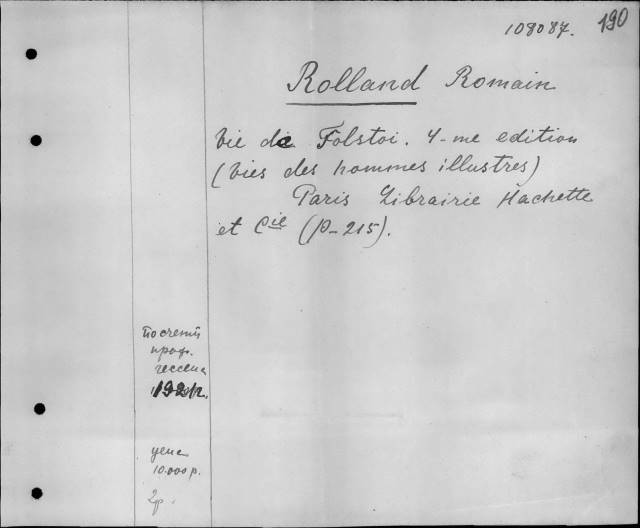 108087. 190
Rolland Romain
Vie de Tolstoi. 4-me edition
(Vies des hommes illustres)
Paris Librairie Hachette
et Cie (p-215).
проф.
гессена
192
цена
10.000 р.
2р.